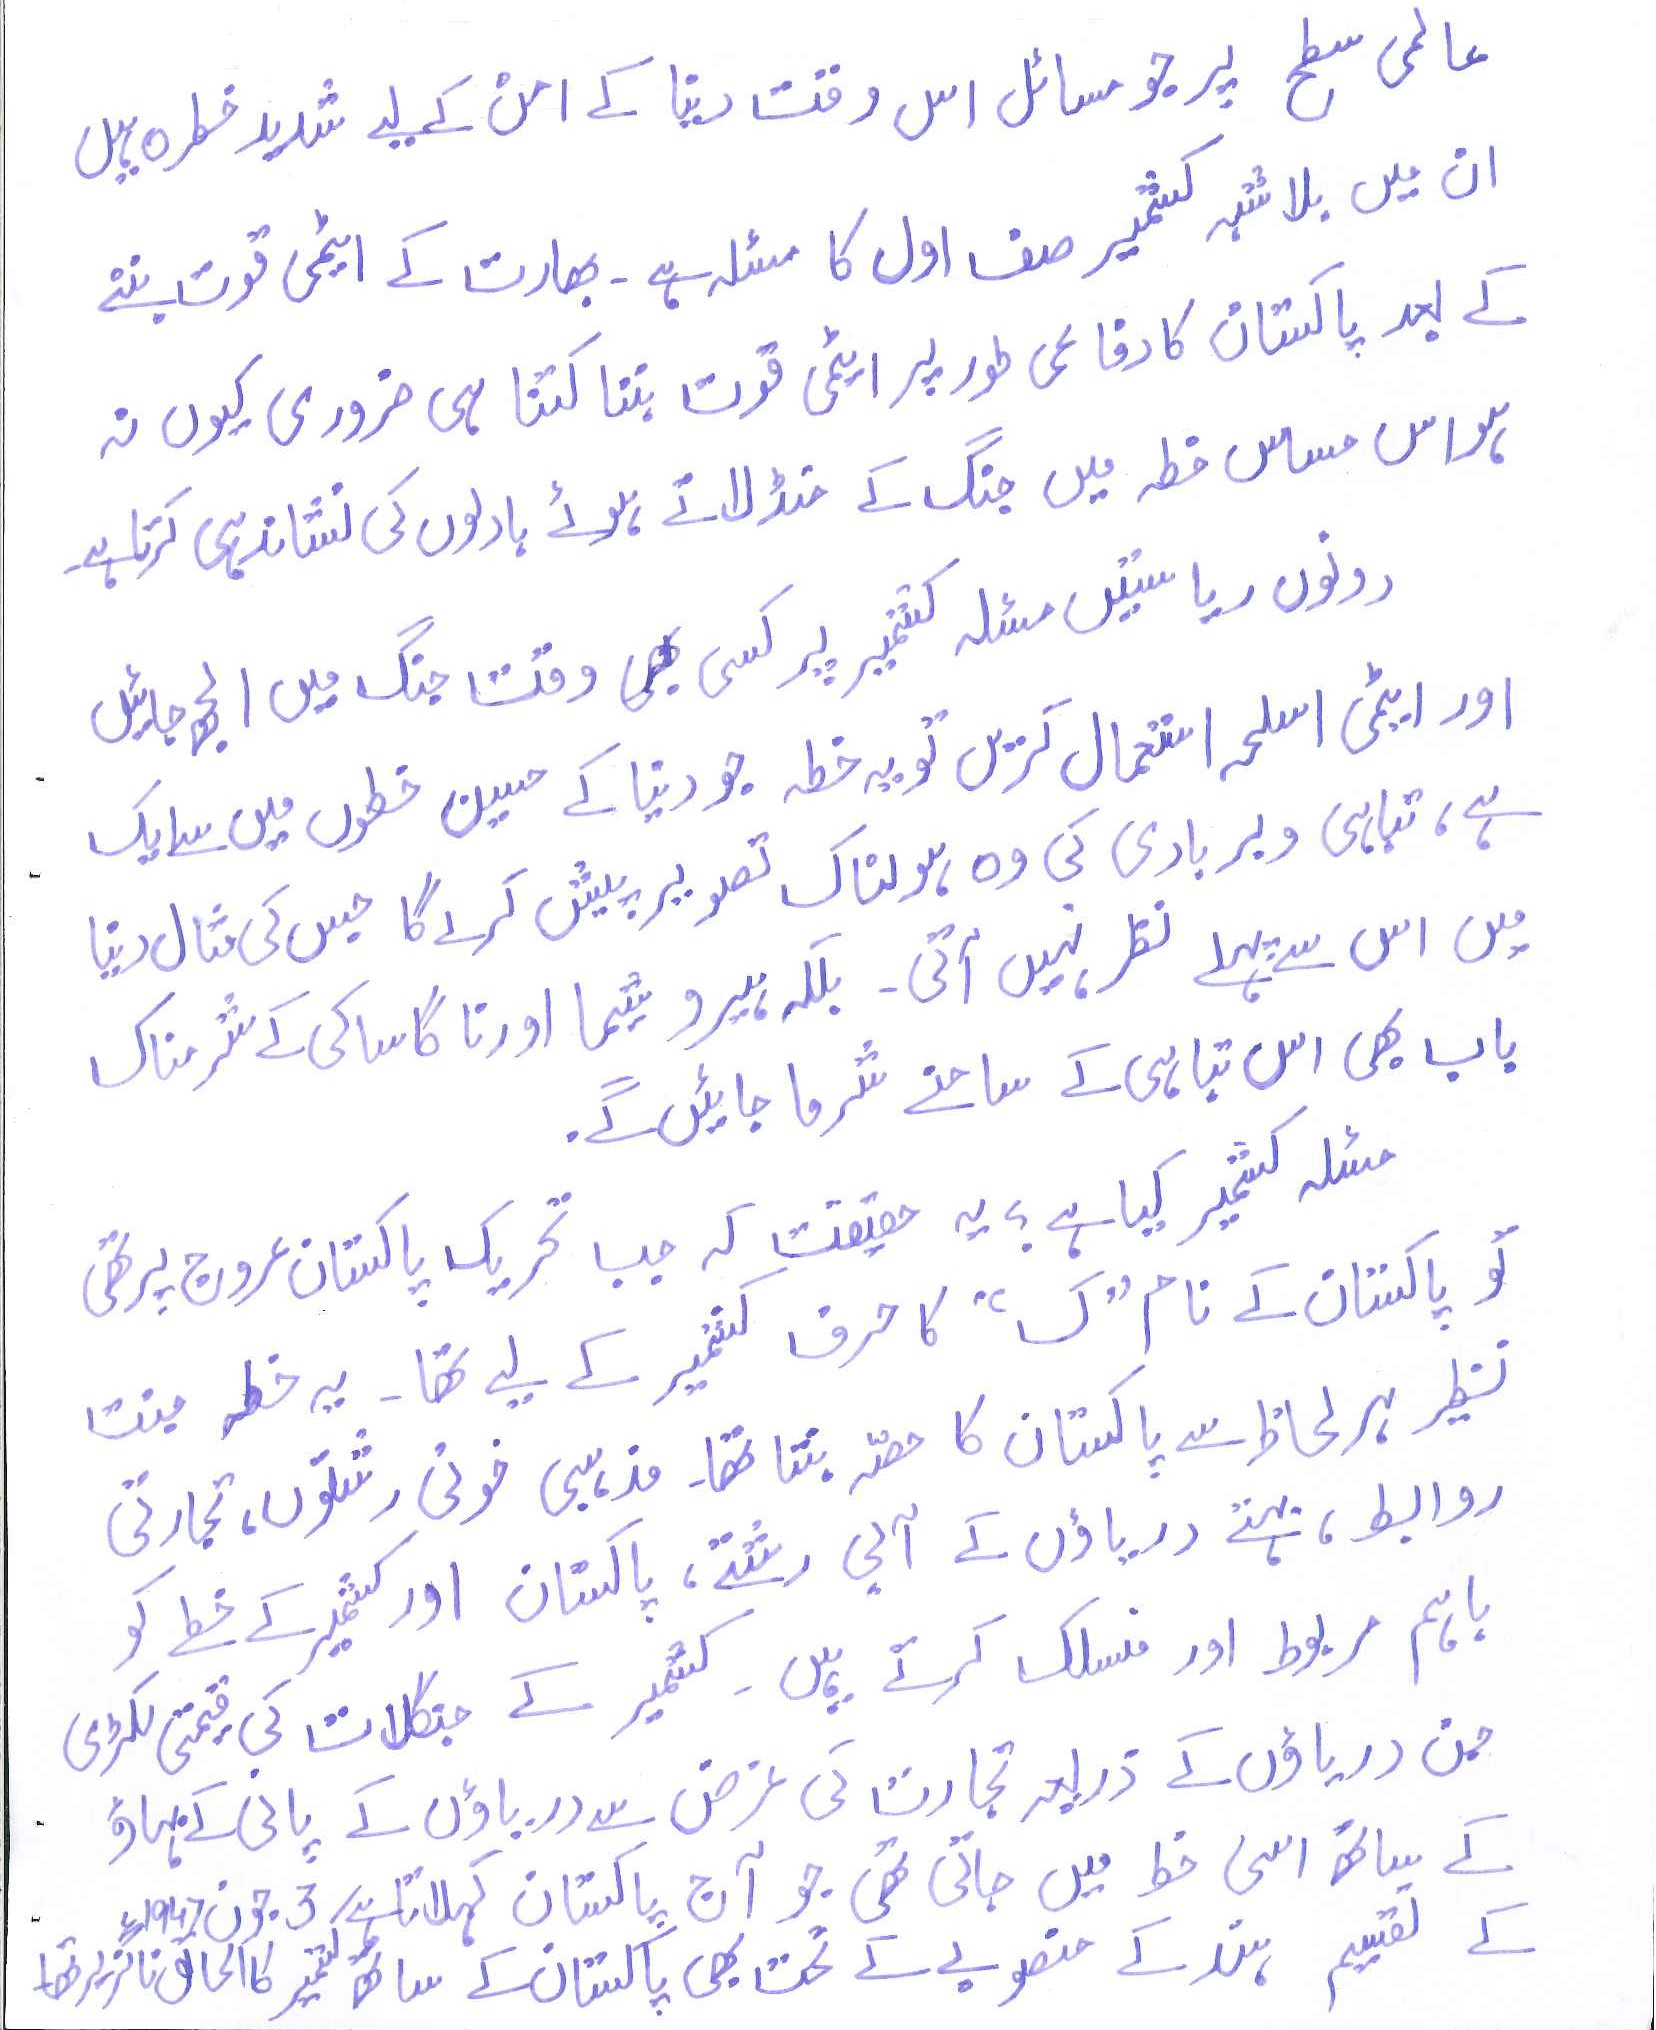 عالمی سطح پر جو مسائل اس وقت دنیا کے امن کے لیے شدید خطرہ ہیں
ان میں بلاشبہ کشمیر صف اول کا مسئلہ ہے۔ بھارت کے ایٹمی قوت بننے
کے بعد پاکستان کا دفاعی طور پر ایٹمی قوت بننا کتنا ہی ضروری کیوں نہ
ہو اس حساس خطہ میں جنگ کے منڈلاتے ہوئے بادلوں کی نشاندہی کرتا ہے۔
دونوں ریاستیں مسئلہ کشمیر پر کسی بھی وقت جنگ میں الجھ جائیں
اور ایٹمی اسلحہ استعمال کریں تو یہ خطہ جو دنیا کے حسین خطوں میں سے ایک
ہے، تباہی و بربادی کی وہ ہولناک تصویر پیش کرے گا جس کی مثال دنیا
میں اس سے پہلے نظر نہیں آتی۔ بلکہ ہیروشیما اور ناگاساکی کے شرمناک
باب بھی اس تباہی کے سامنے شرما جائیں گے.
مسئلہ کشمیر کیا ہے؟ یہ حقیقت کہ جب تحریک پاکستان عروج پر تھی
تو پاکستان کے نام ”ک“ کا حرف کشمیر کے لیے تھا۔ یہ خطہ جنت
نظیر ہر لحاظ سے پاکستان کا حصّہ بنتا تھا۔ مذہبی خونی رشتوں، تجارتی
روابط، بہتے دریاؤں کے آبی رشتے، پاکستان اور کشمیر کے خطے کو
باہم مربوط اور منسلک کرتے ہیں۔ کشمیر کے جنگلات کی قیمتی لکڑی
جن دریاؤں کے ذریعہ تجارت کی غرض سے دریاؤں کے پانی کے بہاؤ
کے ساتھ اسی خطہ میں جاتی تھی جو آج پاکستان کہلاتا ہے 3 جون 1947ء
کے تقسیم ہند کے منصوبے کے تحت بھی پاکستان کے ساتھ کشمیر کا الحاق ناگزیر تھا